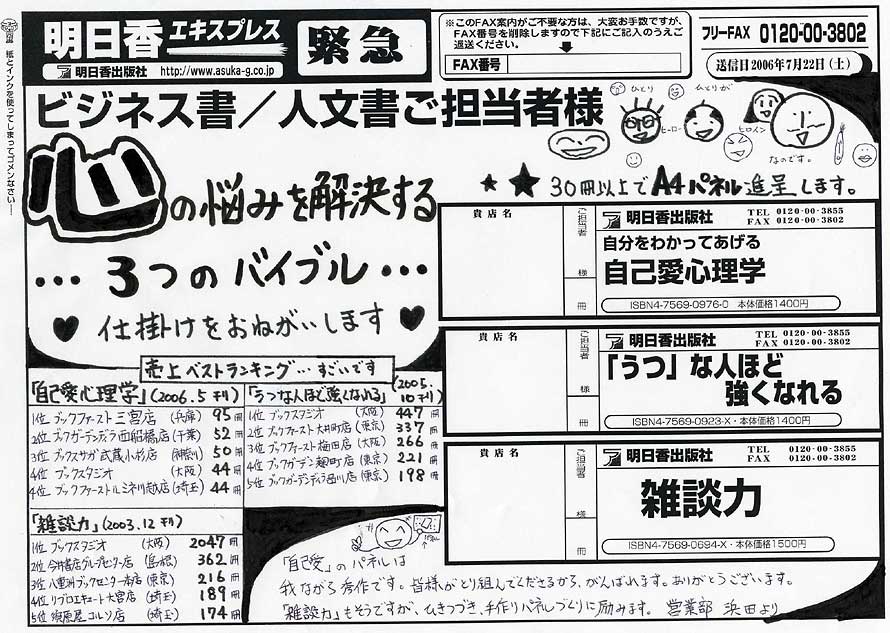 紙とインクを使ってしまってゴメンなさい……
明日香エキスプレス
明日香出版社 http://www.asuka-g.co.jp
緊急
※このFAX案内がご不要な方は、大変お手数ですが、
FAX番号を削除しますので下記にご記入のうえご
返送ください。
FAX番号
フリーFAX 0120-00-3802
送信日2006年7月22日(土)
ビジネス書/人文書ご担当者様
ひとり
ひとりが
ヒーロー
ヒロイン
なのです。
心の悩みを解決する
…3つのバイブル…
♥仕掛けをおねがいします♥
★★30冊以上でA4パネル進呈します。
貴店名
ご担当者
様
冊
明日香出版社
TEL 0120-00-3855
FAX 0120-00-3802
自分をわかってあげる
自己愛心理学
ISBN4-7569-0976-0・本体価格1400円
貴店名
ご担当者
様
冊
明日香出版社
TEL 0120-00-3855
FAX 0120-00-3802
「うつ」な人ほど
強くなれる
ISBN4-7569-0923-X・本体価格1400円
貴店名
ご担当者
様
冊
明日香出版社
TEL 0120-00-3855
FAX 0120-00-3802
雑談力
ISBN4-7569-0694-X・本体価格1500円
売上ベストランキング…すごいです
「自己愛心理学」(2006.5刊)
1位 ブックファースト三宮店(兵庫)95冊
2位 ブックガーデンディラ西船橋店(千葉)52冊
3位 ブックスサガ武蔵小杉店(神奈川)50冊
4位 ブックスタジオ(大阪)44冊
4位 ブックファーストルミネ川越店(埼玉)44冊
「うつな人ほど強くなれる」(2005.10刊)
1位 ブックスタジオ(大阪)447冊
2位 ブックファースト大井町店(東京)337冊
3位 ブックファースト梅田店(大阪)266冊
4位 ブックガーデン麹町店(東京)221冊
5位 ブックガーデンディラ品川店(東京)198冊
「雑談力」(2003.12刊)
1位 ブックスタジオ(大阪)2047冊
2位 今井書店グループセンター店(島根)362冊
3位 八重洲ブックセンター本店(東京)216冊
4位 リブロエキュート大宮店(埼玉)189冊
5位 須原屋コルソ店(埼玉)174冊
「自己愛」のパネルは
我ながら秀作です。皆様がとり組んでくださるから、がんばれます。ありがとうございます。
「雑談力」もそうですが、ひきつづき、手作りパネルづくりに励みます。営業部 浜田より